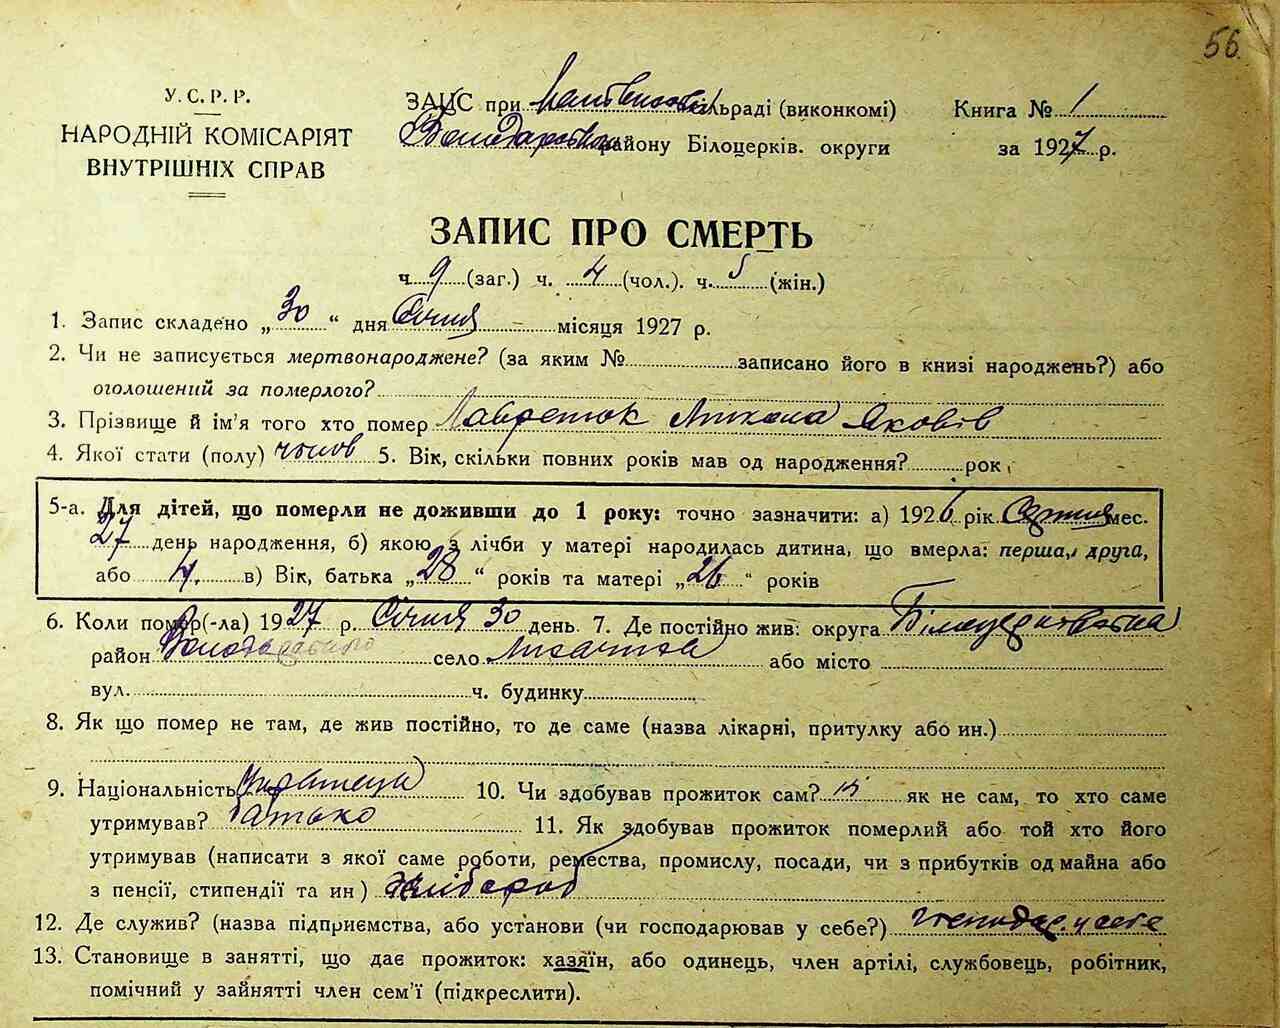 56
У. С. Р. Р.
НАРОДНІЙ КОМІСАРІЯТ
ВНУТРІШНІХ СПРАВ
ЗАГС при сільраді (виконкомі)
району Білоцерків. округи
Книга № 1
за 1927 р.
ЗАПИС ПРО СМЕРТЬ
ч. 9 (заг.) ч. 4 (чол.). ч. 5 (жін.)
1. Запис складено „30“ дня Січня місяця 1927 р.
2. Чи не записується мертвонароджене? (за яким № записано його в книзі народжень?) або
оголошений за померлого?
3. Прізвище й ім'я того хто помер Микола Яковів
4. Якої стати (полу) чолов 5. Вік, скільки повних років мав од народження? рок
5-а. Для дітей, що померли не доживши до 1 року: точно зазначити: а) 1926 рік мес.
27 день народження, б) якою з лічби у матері народилась дитина, що вмерла: перша, друга,
або 4. в) Вік, батька „28“ років та матері „26“ років
6. Коли помер(-ла) 1927 р. Січня 30 день. 7. Де постійно жив: округа Білоцерківська
район село або місто
вул. ч. будинку
8. Як що помер не там, де жив постійно, то де саме (назва лікарні, притулку або ин.)
9. Національність 10. Чи здобував прожиток сам? ні як не сам, то хто саме
утримував? батько 11. Як здобував прожиток померлий або той хто його
утримував (написати з якої саме роботи, ремества, промислу, посади, чи з прибутків од майна або
з пенсії, стипендії та ин) хлібороб
12. Де служив? (назва підприємства, або установи (чи господарював у себе?) господар. у себе
13. Становище в занятті, що дає прожиток: хазяїн, або одинець, член артілі, службовець, робітник,
помічний у зайнятті член сем'ї (підкреслити).